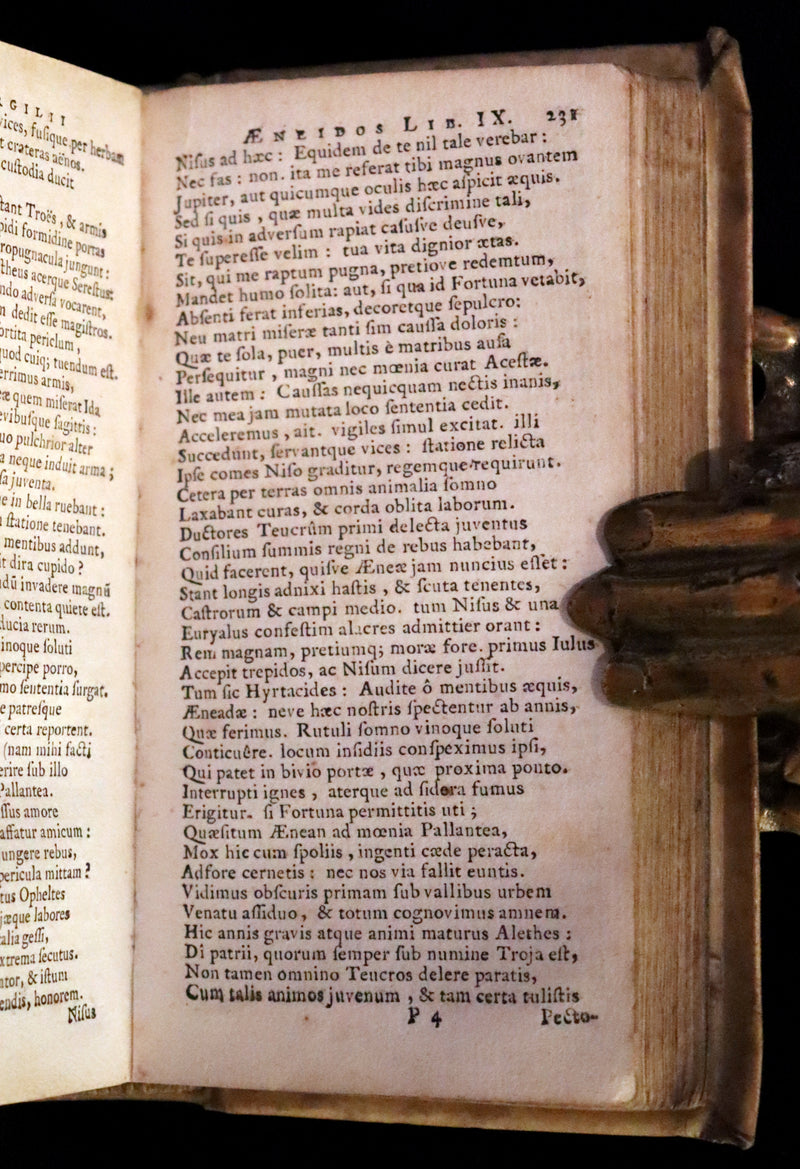 GILII
vices, fusique per herbam
t crateras aënos.
custodia ducit
tant Troës, & armis
pidi formidine portas
ropugnacula jungunt:
theus acerque Serestus:
ndo adversa vocarent,
n dedit esse magistros.
ortita periclum,
quod cuiq; tuendum est.
errimus armis,
æ quem miserat Ida
evibusque sagittis:
uo pulchrior alter
a neque induit arma;
sa juventa.
e in bella ruebant:
statione tenebant.
mentibus addunt,
t dira cupido?
dū invadere magnū
contenta quiete est.
lucia rerum.
inoque soluti
percipe porro,
mo sententia surgat.
e patresque
certa reportent.
(nam mihi facti
erire sub illo
Pallantea.
ssus amore
affatur amicum:
ungere rebus,
pericula mittam?
tus Opheltes
jæque labores
alia gessi,
xtrema secutus.
ntor, & istum
endis, honorem.
Nisus
ÆNEIDOS LIB. IX. 231
Nisus ad hæc: Equidem de te nil tale verebar:
Nec fas: non. ita me referat tibi magnus ovantem
Jupiter, aut quicumque oculis hæc aspicit æquis.
Sed si quis, quæ multa vides discrimine tali,
Si quis in adversum rapiat casusve deusve,
Te superesse velim: tua vita dignior ætas.
Sit, qui me raptum pugna, pretiove redemtum,
Mandet humo solita: aut, si qua id Fortuna vetabit,
Absenti ferat inferias, decoretque sepulcro:
Neu matri miseræ tanti sim caussa doloris:
Quæ te sola, puer, multis è matribus ausa
Persequitur, magni nec mœnia curat Acestæ.
Ille autem: Caussas nequicquam nectis inanis,
Nec mea jam mutata loco sententia cedit.
Acceleremus, ait. vigiles simul excitat. illi
Succedunt, servantque vices: statione relicta
Ipse comes Niso graditur, regemque requirunt.
Cetera per terras omnis animalia somno
Laxabant curas, & corda oblita laborum.
Ductores Teucrûm primi delecta juventus
Consilium summis regni de rebus habebant,
Quid facerent, quisve Æneæ jam nuncius esset:
Stant longis adnixi hastis, & scuta tenentes,
Castrorum & campi medio. tum Nisus & una
Euryalus confestim alacres admittier orant:
Rem magnam, pretiumq; moræ fore. primus Iulus
Accepit trepidos, ac Nisum dicere jussit.
Tum sic Hyrtacides: Audite ô mentibus æquis,
Æneadæ: neve hæc nostris spectentur ab annis,
Quæ ferimus. Rutuli somno vinoque soluti
Conticuêre. locum insidiis conspeximus ipsi,
Qui patet in bivio portæ, quæ proxima ponto.
Interrupti ignes, aterque ad sidera fumus
Erigitur. si Fortuna permittitis uti;
Quæsitum Ænean ad mœnia Pallantea,
Mox hic cum spoliis, ingenti cæde peracta,
Adfore cernetis: nec nos via fallit euntis.
Vidimus obscuris primam sub vallibus urbem
Venatu assiduo, & totum cognovimus amnem.
Hic annis gravis atque animi maturus Alethes:
Di patrii, quorum semper sub numine Troja est,
Non tamen omnino Teucros delere paratis,
Cum talis animos juvenum, & tam certa tulistis
P 4 Pecto-